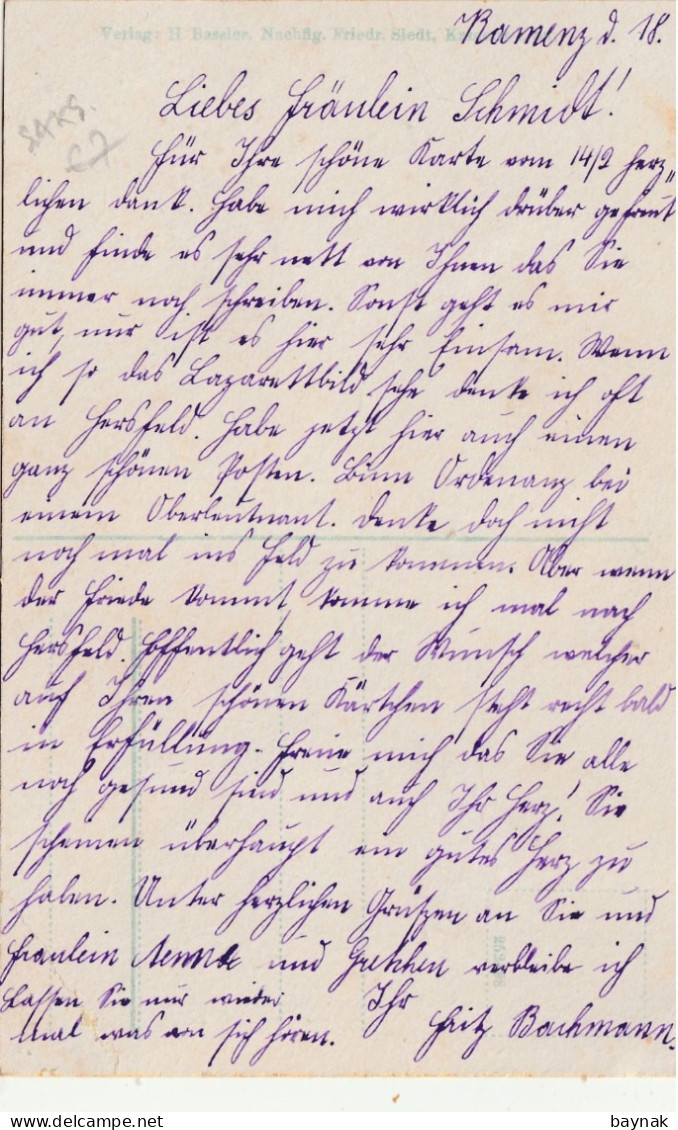 Verlag: H Basseler. Nachflg. Friedr. Siedt,
Kamenz d. 18.
Liebes Fräulein Schmidt!
Für Ihre schöne Karte vom 14/2 herz„
lichen dank. Habe mich wirklich drüber gefreut
und finde es sehr nett von Ihnen das Sie
immer noch schreiben. Sonst geht es mir
gut, nur ist es hier sehr Einsam. Wenn
ich so das Lazarettbild sehe denke ich oft
an Hersfeld. Habe jetzt hier auch einen
ganz schönen Posten. Binn Ordenanz bei
einem Oberleutnant. Denke doch nicht
noch mal ins Feld zu kommen. Aber wenn
der Friede kommt, komme ich mal nach
Hersfeld. Hoffentlich geht der Wunsch welcher
auf Ihren schönen Kärtchen steht recht bald
in Erfüllung. Freue mich das Sie alle
noch gesund sind und auch Ihr Herz! Sie
scheinen überhaupt ein gutes Herz zu
haben. Unter herzlichen Grüszen an Sie und
Fraulein und verbleibe ich
Lassen Sie nur wieder Ihr
mal was von sich hören. Fritz Bachmann.
baynak